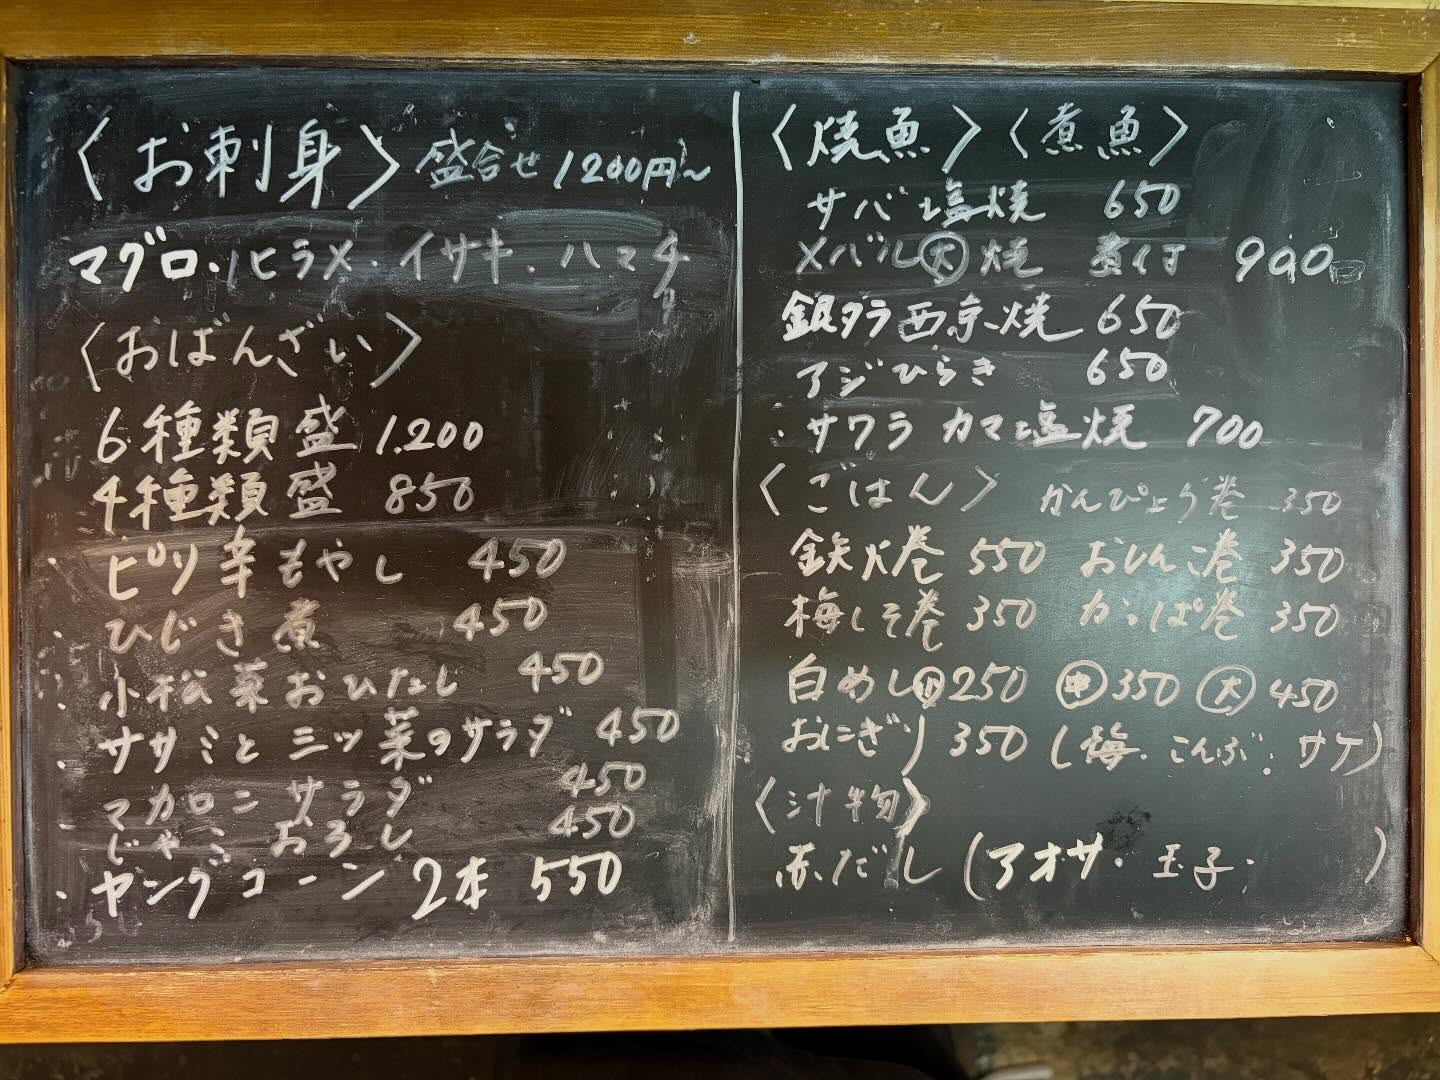 〈お刺身〉盛合せ 1200円〜
マグロ・ヒラメ・イサキ・ハマチ
〈おばんざい〉
6種類盛 1.200
4種類盛 850
・ピリ辛もやし 450
ひじき煮 450
・小松菜おひたし 450
・ササミと三ツ菜のサラダ 450
・マカロニサラダ 450
じゃこおろし 450
・ヤングコーン 2本 550
〈焼魚〉〈煮魚〉
サバ塩焼 650
メバル大焼 煮付 900
銀ダラ西京焼 650
アジひらき 650
・サワラ カマ塩焼 700
〈ごはん〉 かんぴょう巻 350
鉄火巻 550 おしんこ巻 350
梅しそ巻 350 かっぱ巻 350
白めし小250 中350 大450
おにぎり 350 (梅・こんぶ・サケ)
〈汁物〉
赤だし (アオサ・玉子・ )